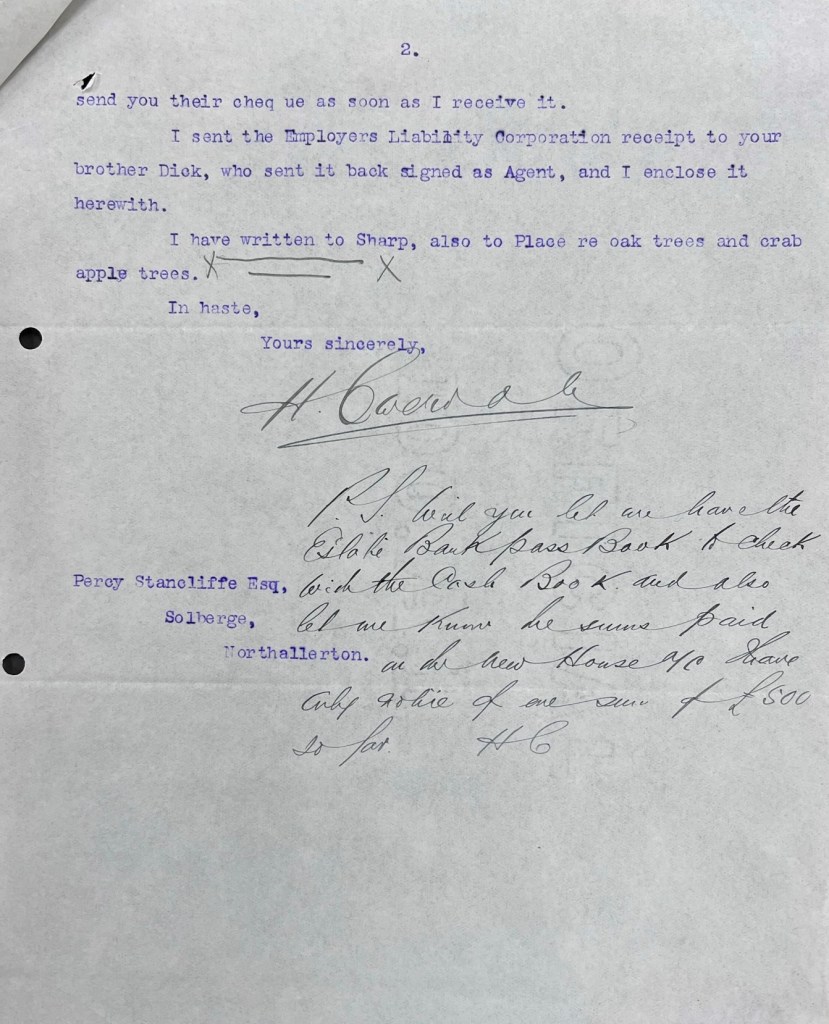 2.
send you their cheq ue as soon as I receive it.
I sent the Employers Liability Corporation receipt to your
brother Dick, who sent it back signed as Agent, and I enclose it
herewith.
I have written to Sharp, also to Place re oak trees and crab
apple trees. X X
In haste,
Yours sincerely,
H.
P.S. Will you let me have the
Estate Bank pass Book to check
Percy Stancliffe Esq, with the Cash Book. and also
Solberge, let me know the sums paid
Northallerton. on the new House a/c I have
only notice of one sum of £500
so far. HC